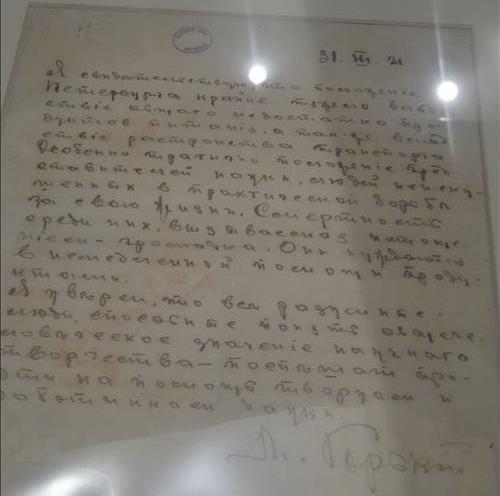 31. III. 21
Я свидетельствую, что положение
Петербурга крайне тяжело вслед-
ствіе общаго недостатка про-
дуктов питанія, а так-же вслед-
ствіе растройства транспорта.
Особенно трагично положение пред-
ставителей науки, людей неиску-
шенных в практической борьбе
за свою жизнь. Смертность
среди них, вызываемая истоще-
ніем — громадна. Они нуждаются
в немедленной помощи проду-
ктами.
Я уверен, что все разумные
люди, способные понять общече-
ловеческое значеніе научнаго
творчества — поспешат при-
дти на помощь творцам и
работникам науки.
М. Горькій